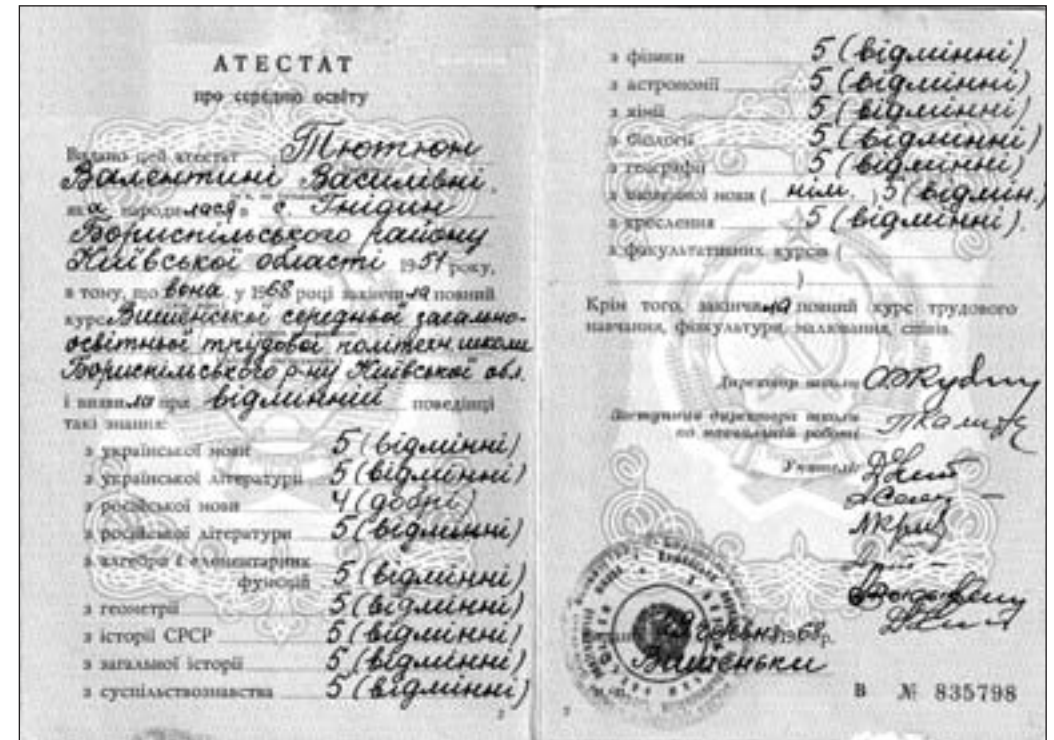 АТЕСТАТ
про середню освіту
Видано цей атестат Тютюн
Валентині Василівні,
яка народилася в с. Гнідин
Бориспільського району
Київської області 1951 року,
в тому, що вона у 1968 році закінчила повний
курс Вишеньської середньої загально-
освітньої трудової політехн. школи
Бориспільського р-ну Київської обл.
і виявила при відмінній поведінці
такі знання:
з української мови 5 (відмінні)
з української літератури 5 (відмінні)
з російської мови 4 (добрі)
з російської літератури 5 (відмінні)
з алгебри і елементарних
функцій 5 (відмінні)
з геометрії 5 (відмінні)
з історії СРСР 5 (відмінні)
з загальної історії 5 (відмінні)
з суспільствознавства 5 (відмінні)
2
з фізики 5 (відмінні)
з астрономії 5 (відмінні)
з хімії 5 (відмінні)
з біології 5 (відмінні)
з географії 5 (відмінні)
з іноземної мови ( нім. ) 5 (відмін.)
з креслення 5 (відмінні).
з факультативних курсів (
)
Крім того, закінчила повний курс трудового
навчання, фізкультури, малювання, співів.
Директор школи
Заступник директора школи
по навчальній роботі
Учителі:
Видано 1968 р.
Вишеньки
м. п.
В № 835798